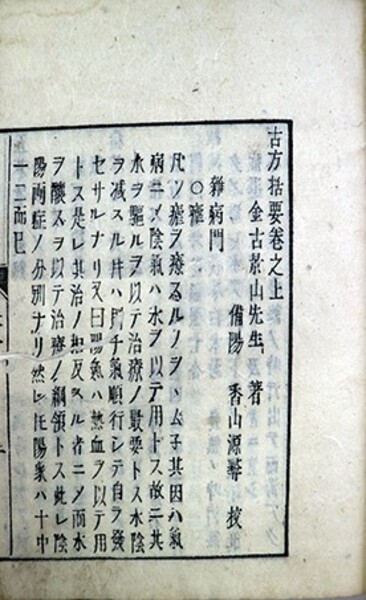 古方括要卷之上
金古景山先生 著
備陽 香山源 挍
雜病門
○瘧
凡ソ瘧ヲ療スルノ其因ハ氣
病ニノ陰氣ハ水ヲ以テ用トス故ニ其
水ヲ驅ルヲ以テ治療ノ最要トス水陰
ヲ減スル片ハ則チ氣順行シテ自ラ發
セサルナリ又曰陽氣ハ熱血ヲ以テ用
トス是レ其治ノ相反スル者ニノ而水
ヲ酸スヲ以テ治療ノ綱領トス此レ陰
陽兩症ノ分別ナリ然レ𪜈陽瘧ハ十中
一二而已